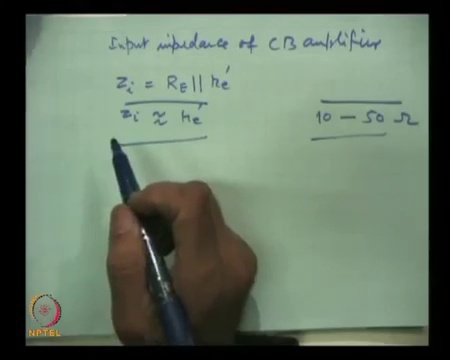 Input impedance of CB amplifier
Zi = RE || re'
Zi ≈ re'
10 - 50 Ω
NPTEL